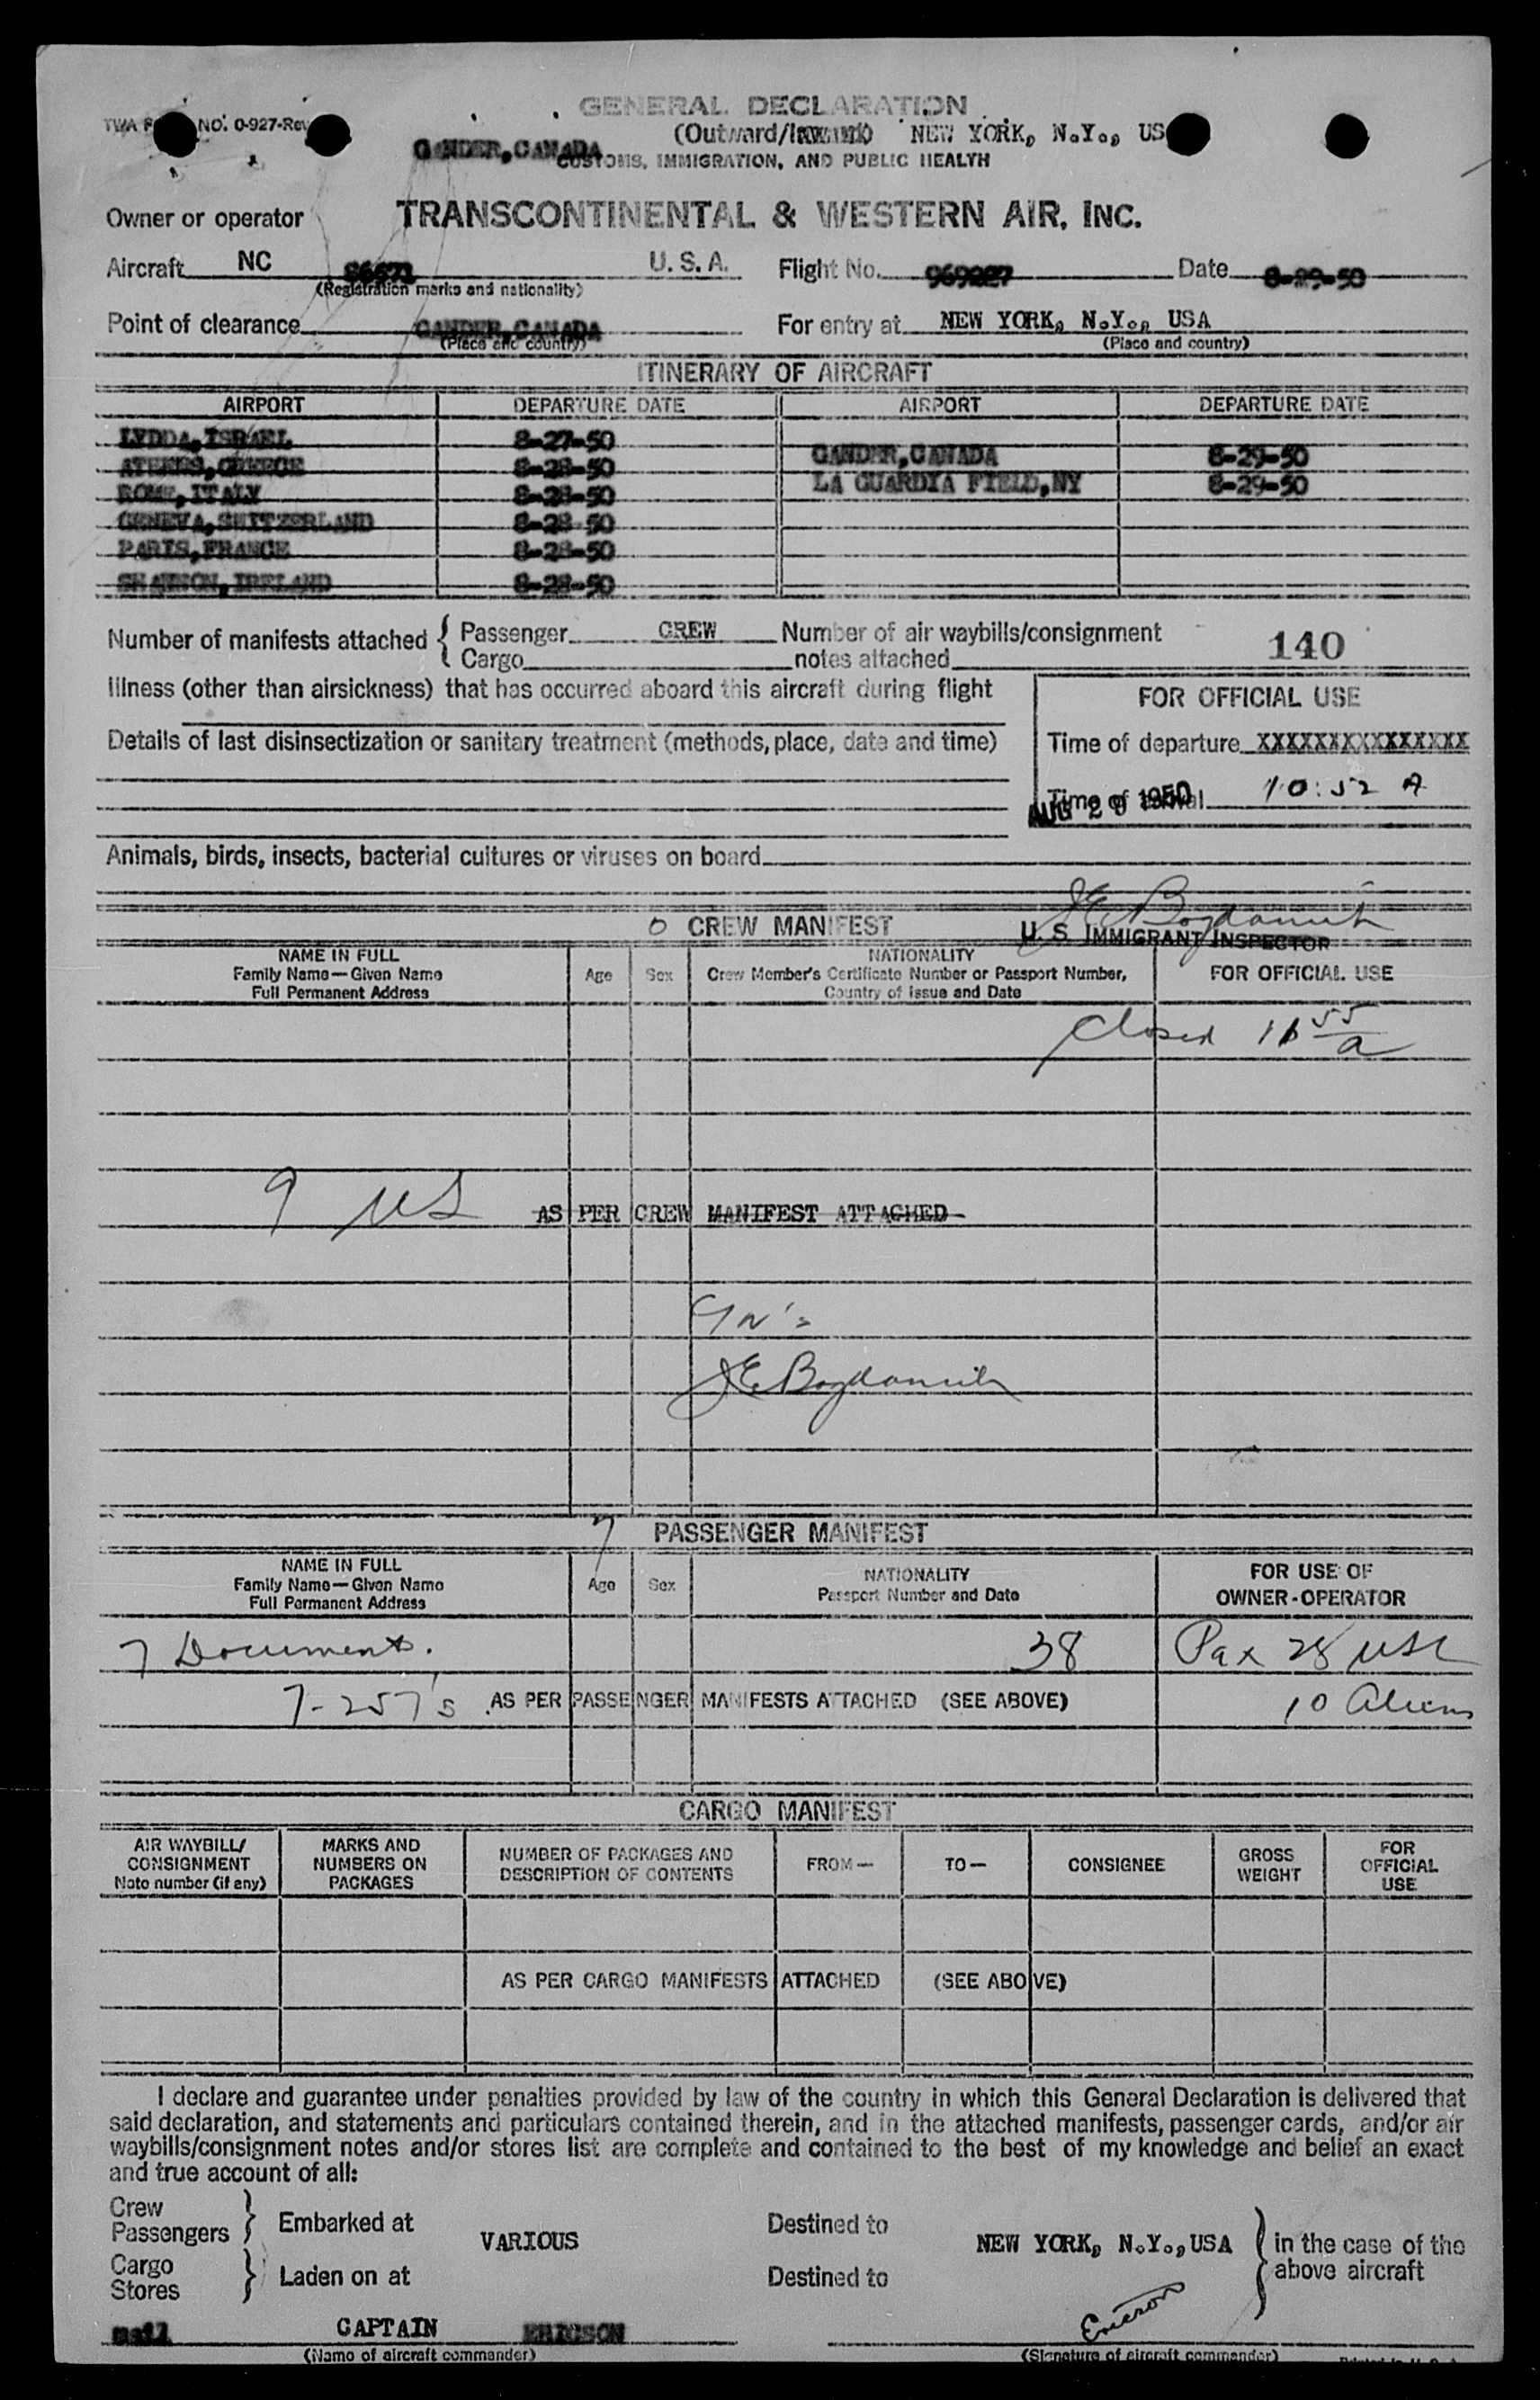 GENERAL DECLARATION
TWA F NO. O-927-Rev
(Outward/Inward) NEW YORK, N.Y., US
GANDER, CANADA
CUSTOMS, IMMIGRATION, AND PUBLIC HEALTH
Owner or operator TRANSCONTINENTAL & WESTERN AIR, INC.
Aircraft NC U. S. A. Flight No. Date 8-29-50
(Registration marks and nationality)
Point of clearance GANDER, CANADA For entry at NEW YORK, N.Y., USA
(Place and country) (Place and country)
ITINERARY OF AIRCRAFT
AIRPORT DEPARTURE DATE AIRPORT DEPARTURE DATE
LYDDA, ISRAEL 8-27-50
ATHENS, GREECE 8-28-50 GANDER, CANADA 8-29-50
ROME, ITALY 8-28-50 LA GUARDIA FIELD, NY 8-29-50
GENEVA, SWITZERLAND 8-28-50
PARIS, FRANCE 8-28-50
SHANNON, IRELAND 8-28-50
Number of manifests attached { Passenger CREW Number of air waybills/consignment 140
Cargo notes attached
Illness (other than airsickness) that has occurred aboard this aircraft during flight
FOR OFFICIAL USE
Details of last disinsectization or sanitary treatment (methods, place, date and time)
Time of departure XXXXXXXXXXXXXXX
Time of arrival 10:52 A
AUG 29 1950
Animals, birds, insects, bacterial cultures or viruses on board
O CREW MANIFEST
U. S. IMMIGRANT INSPECTOR
NAME IN FULL
Family Name—Given Name
Full Permanent Address
Age Sex
NATIONALITY
Crew Member's Certificate Number or Passport Number,
Country of Issue and Date
FOR OFFICIAL USE
Closed 11 55 a
9 US AS PER CREW MANIFEST ATTACHED
7 PASSENGER MANIFEST
NAME IN FULL
Family Name—Given Name
Full Permanent Address
Age Sex
NATIONALITY
Passport Number and Date
FOR USE OF
OWNER-OPERATOR
7 Documents. 38 Pax 28 USC
7-257's AS PER PASSENGER MANIFESTS ATTACHED (SEE ABOVE) 10 Aliens
CARGO MANIFEST
AIR WAYBILL/
CONSIGNMENT
Note number (if any)
MARKS AND
NUMBERS ON
PACKAGES
NUMBER OF PACKAGES AND
DESCRIPTION OF CONTENTS
FROM—
TO—
CONSIGNEE
GROSS
WEIGHT
FOR
OFFICIAL
USE
AS PER CARGO MANIFESTS ATTACHED (SEE ABOVE)
I declare and guarantee under penalties provided by law of the country in which this General Declaration is delivered that
said declaration, and statements and particulars contained therein, and in the attached manifests, passenger cards, and/or air
waybills/consignment notes and/or stores list are complete and contained to the best of my knowledge and belief an exact
and true account of all:
Crew
Passengers } Embarked at VARIOUS Destined to NEW YORK, N.Y., USA } in the case of the
above aircraft
Cargo
Stores } Laden on at Destined to
mail CAPTAIN ERICSON Ericson
(Name of aircraft commander) (Signature of aircraft commander)